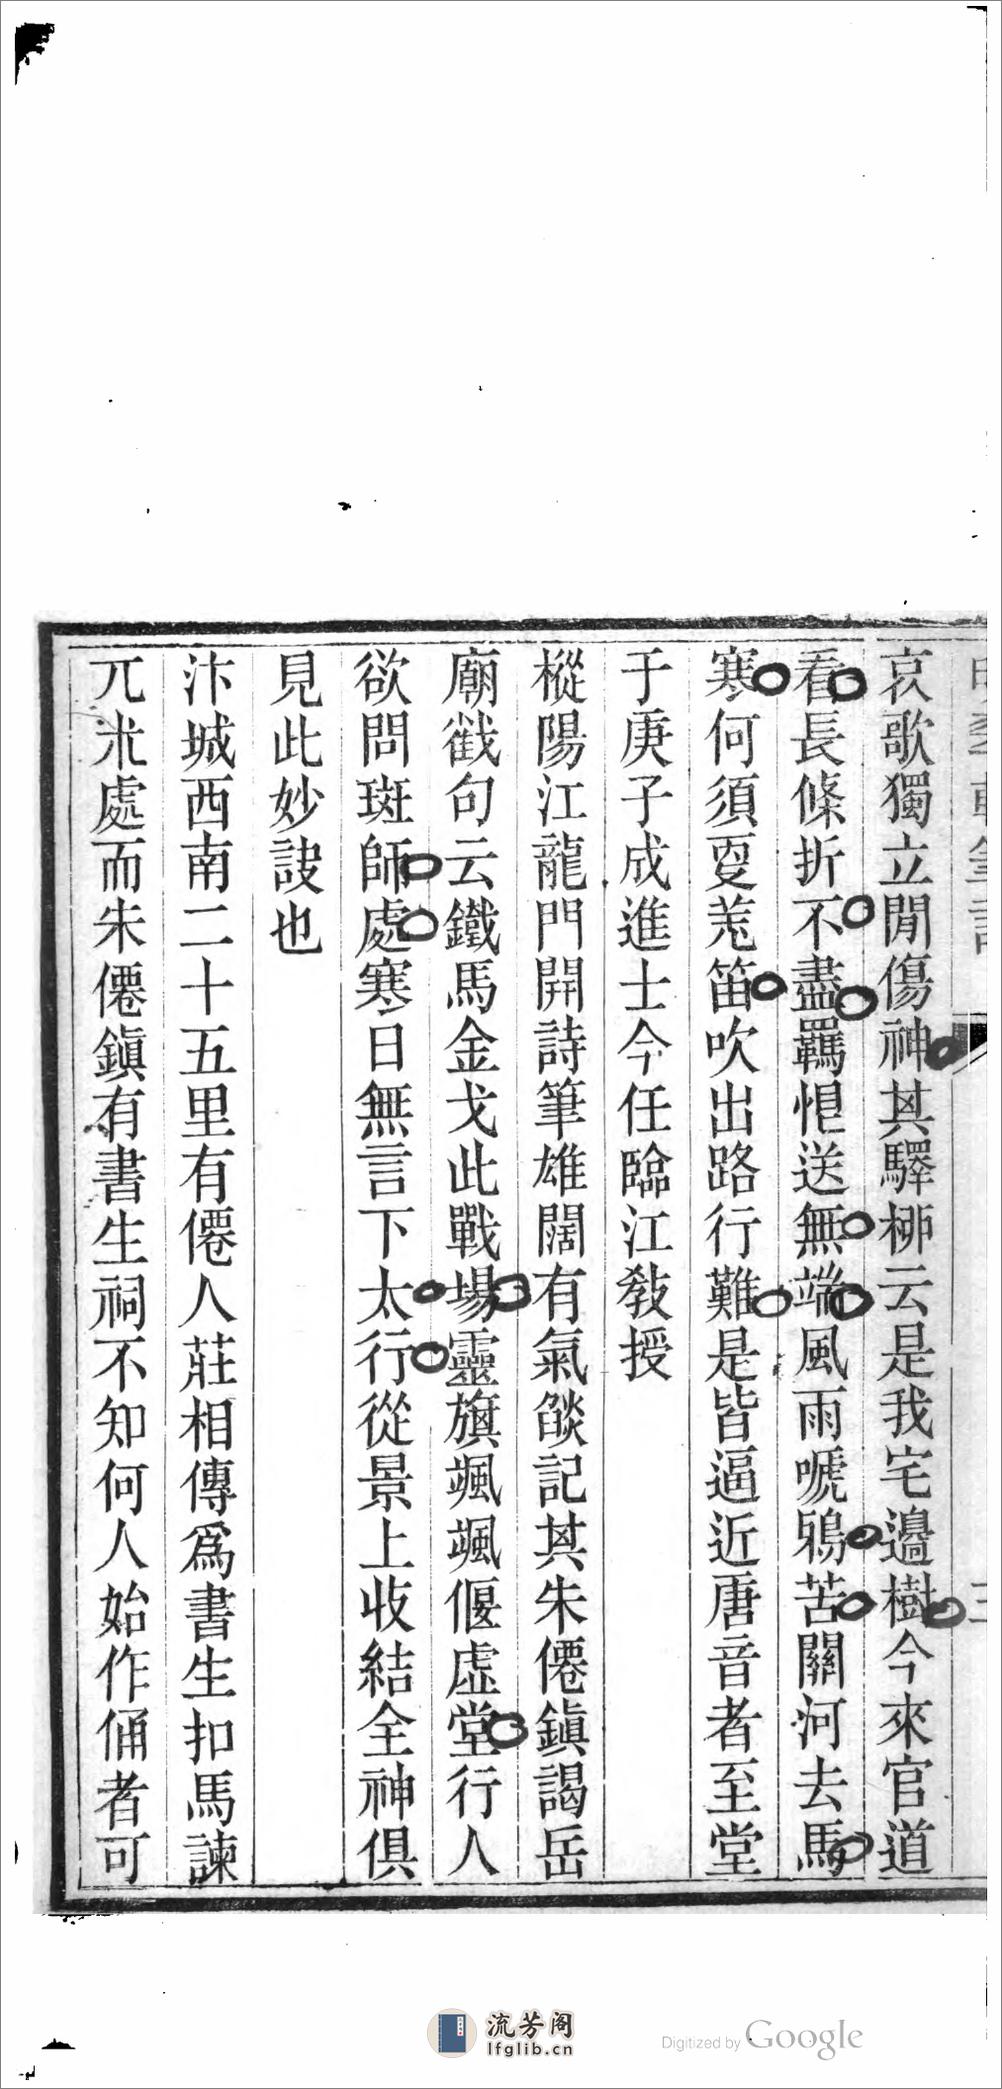 哀歌獨立閒傷神其驛桞云是我宅邊樹今來官道
看長條折不盡羈愳送無端風雨嗁鴉苦關河去馬
寒何須耍羌笛吹出路行難是皆逼近唐音者至堂
于庚子成進士今任臨江敎授
樅陽江龍門開詩筆雄闊有氣燄記其朱僊鎮謁岳
廟戳句云鐵馬金戈此戰場靈旗颯颯偃虛堂行人
欲問班師處寒日無言下太行從景上收結全神俱
見此妙訣也
汴城西南二十五里有僊人莊相傳爲書生扣馬諫
兀朮處而朱僊鎮有書生祠不知何人始作俑者可
流芳阁
lfglib.cn
Digitized by Google